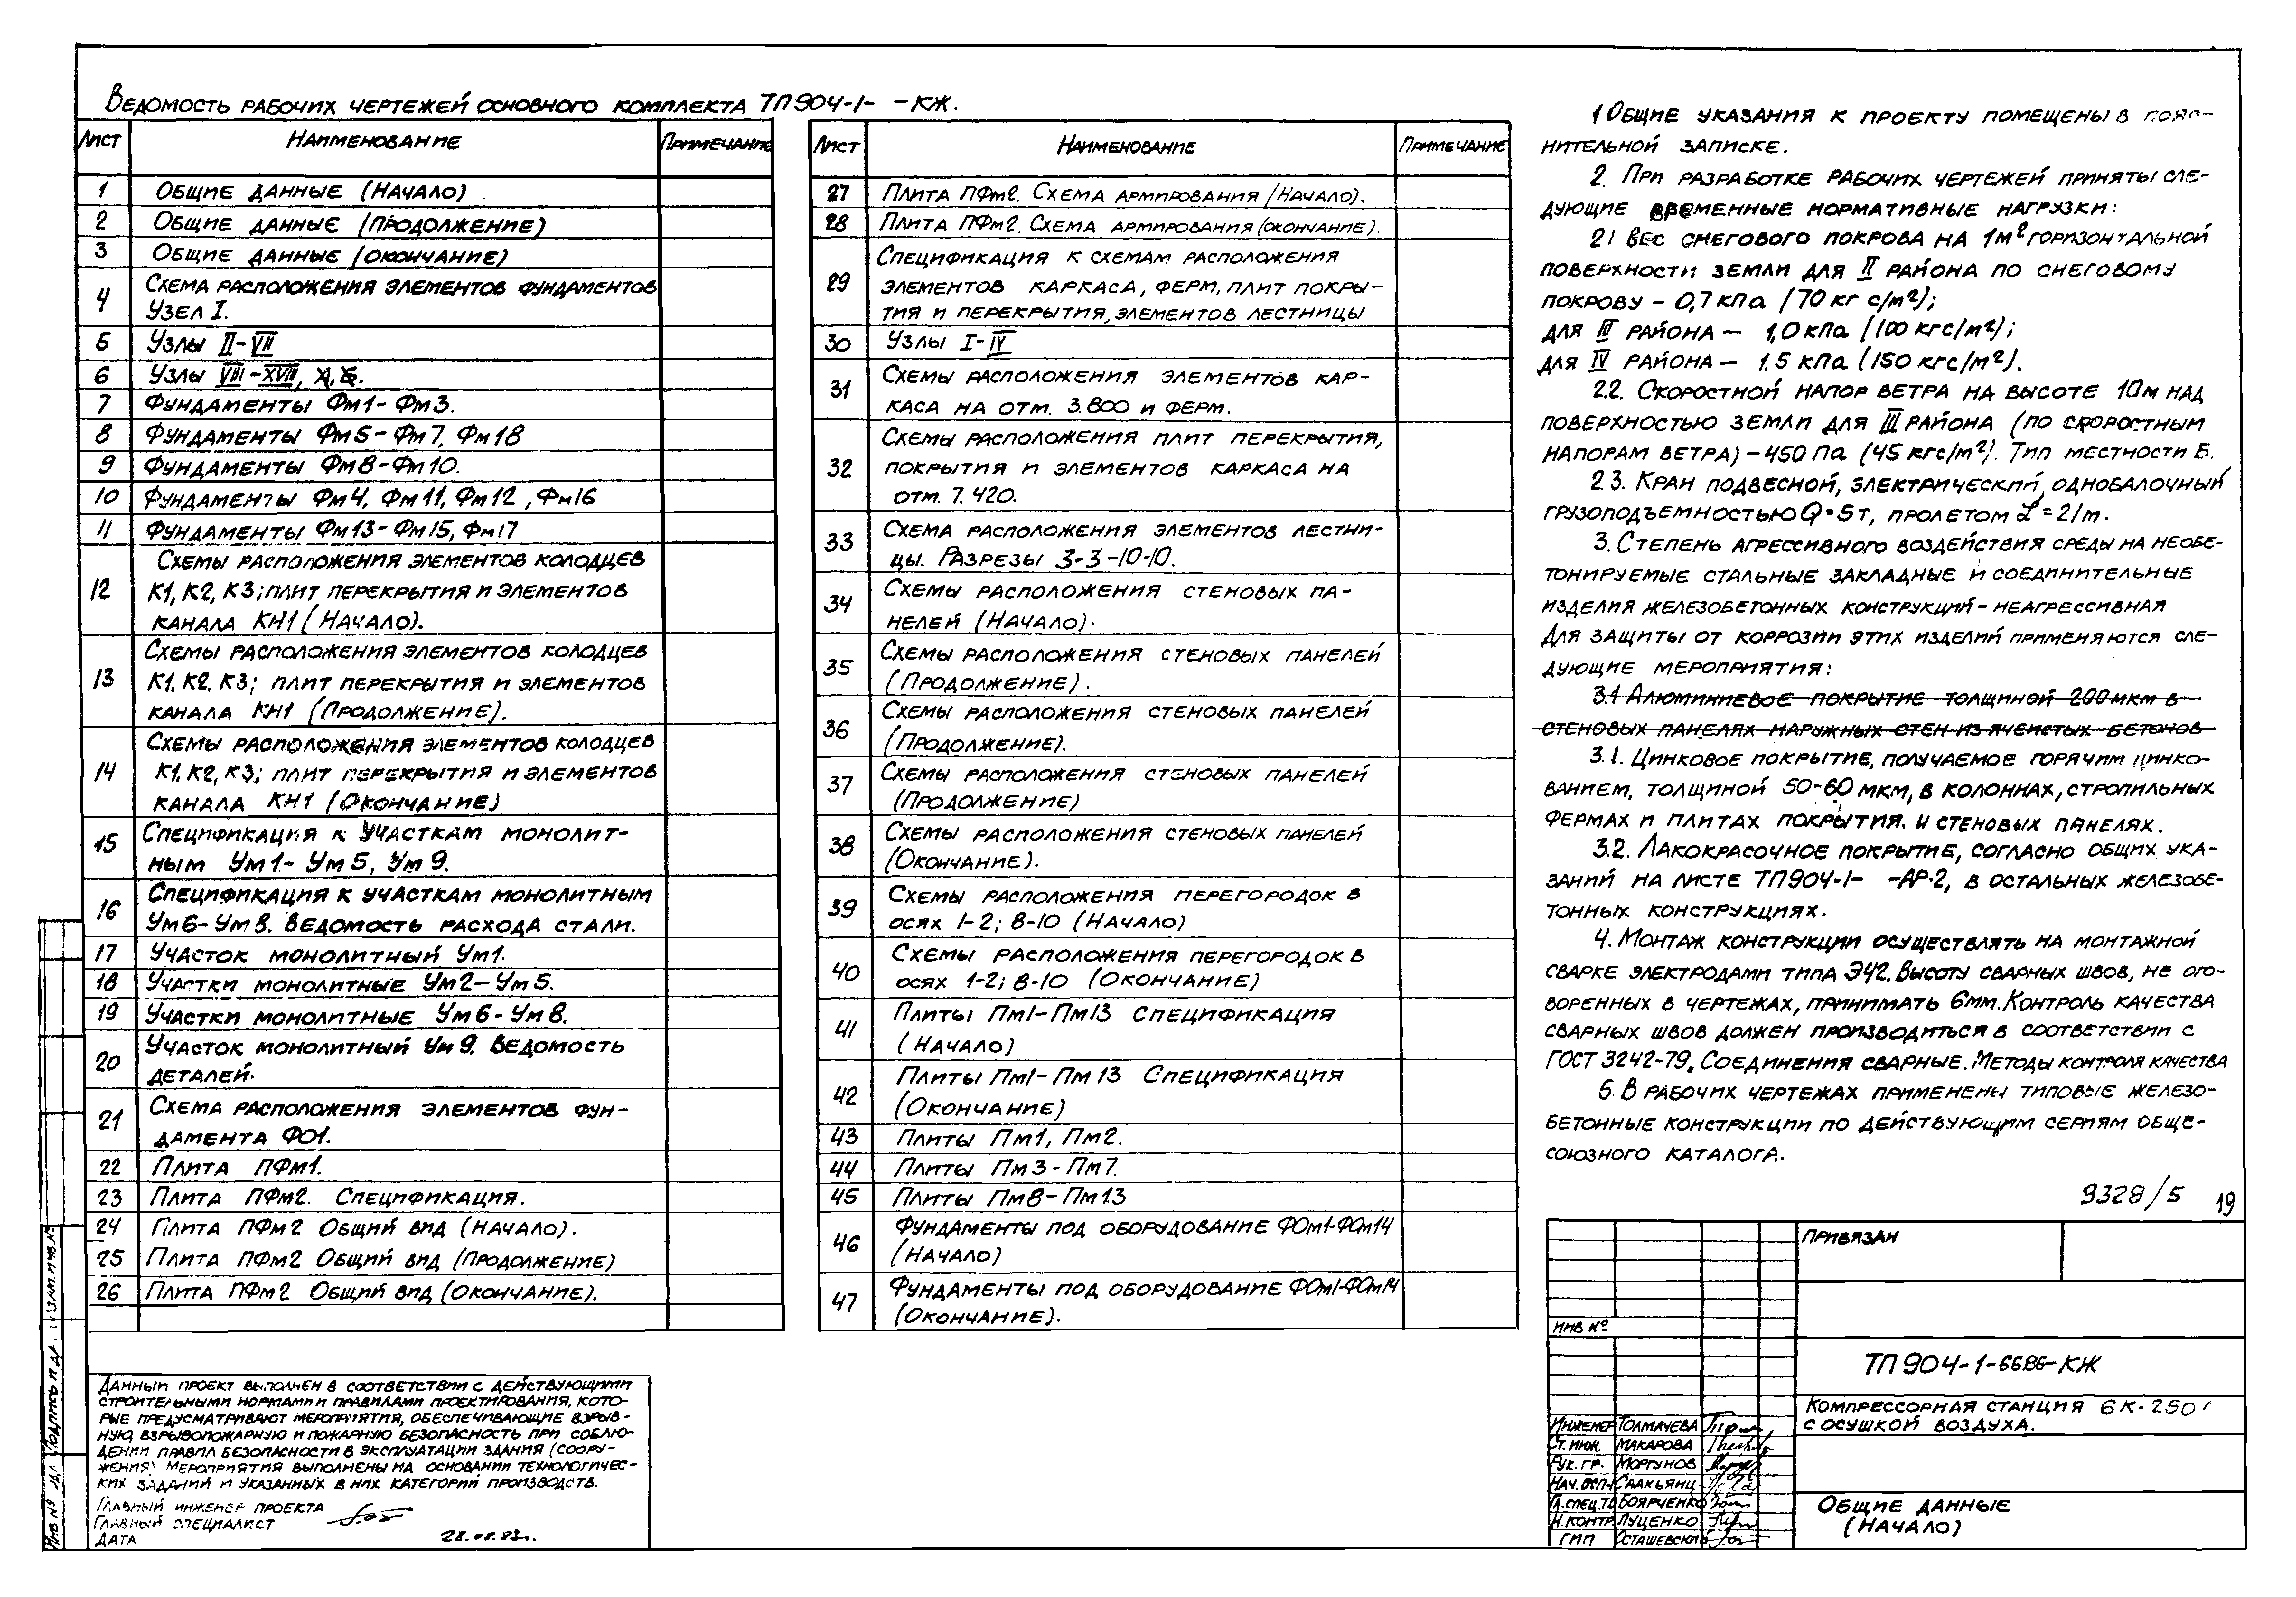 Ведомость рабочих чертежей основного комплекта ТП904-1- -КЖ.
Лист Наименование Примечание
1 Общие данные (Начало)
2 Общие данные (Продолжение)
3 Общие данные (окончание)
4 Схема расположения элементов фундаментов
Узел I.
5 Узлы II-VII
6 Узлы VIII-XVII,
7 Фундаменты Фм1- Фм3.
8 Фундаменты Фм5- Фм7, Фм18
9 Фундаменты Фм8-Фм10.
10 Фундаменты Фм4, Фм11, Фм12, Фм16
11 Фундаменты Фм13- Фм15, Фм17
12 Схемы расположения элементов колодцев
К1, К2, К3; плит перекрытия и элементов
канала КН1 (Начало).
13 Схемы расположения элементов колодцев
К1, К2, К3; плит перекрытия и элементов
канала КН1 (Продолжение).
14 Схемы расположения элементов колодцев
К1, К2, К3; плит перекрытия и элементов
канала КН1 (Окончание)
15 Спецификация к участкам монолит-
ным Ум1- Ум5, Ум9.
16 Спецификация к участкам монолитным
Ум6- Ум8. Ведомость расхода стали.
17 Участок монолитный Ум1.
18 Участки монолитные Ум2- Ум5.
19 Участки монолитные Ум6- Ум8.
20 Участок монолитный Ум9. Ведомость
деталей.
21 Схема расположения элементов фун-
дамента ФО1.
22 Плита ПФм1.
23 Плита ПФм2. Спецификация.
24 Плита ПФм2 Общий вид (Начало).
25 Плита ПФм2 Общий вид (Продолжение)
26 Плита ПФм2 Общий вид (Окончание).
Лист Наименование Примечание
27 Плита ПФм2. Схема армирования (Начало).
28 Плита ПФм2. Схема армирования (окончание).
29 Спецификация к схемам расположения
элементов каркаса, ферм, плит покры-
тия и перекрытия, элементов лестницы
30 Узлы I-IV
31 Схемы расположения элементов кар-
каса на отм. 3.800 и ферм.
32 Схемы расположения плит перекрытия,
покрытия и элементов каркаса на
отм. 7.420.
33 Схема расположения элементов лестни-
цы. Разрезы 3-3-10-10.
34 Схемы расположения стеновых па-
нелей (Начало).
35 Схемы расположения стеновых панелей
(Продолжение).
36 Схемы расположения стеновых панелей
(Продолжение).
37 Схемы расположения стеновых панелей
(Продолжение)
38 Схемы расположения стеновых панелей
(Окончание).
39 Схемы расположения перегородок в
осях 1-2; 8-10 (Начало)
40 Схемы расположения перегородок в
осях 1-2; 8-10 (Окончание)
41 Плиты Пм1-Пм13 Спецификация
(Начало)
42 Плиты Пм1-Пм13 Спецификация
(Окончание)
43 Плиты Пм1, Пм2.
44 Плиты Пм3-Пм7.
45 Плиты Пм8-Пм13
46 Фундаменты под оборудование ФОм1-ФОм14
(Начало)
47 Фундаменты под оборудование ФОм1-ФОм14
(Окончание).
1 Общие указания к проекту помещены в пояс-
нительной записке.
2. При разработке рабочих чертежей приняты сле-
дующие временные нормативные нагрузки:
2.1 Вес снегового покрова на 1м² горизонтальной
поверхности земли для II района по снеговому
покрову - 0,7 кПа (70 кг с/м²);
для III района - 1,0 кПа (100 кгс/м²);
для IV района - 1.5 кПа (150 кгс/м²).
2.2. Скоростной напор ветра на высоте 10м над
поверхностью земли для III района (по скоростным
напорам ветра) - 450 Па (45 кгс/м²). Тип местности Б.
2.3. Кран подвесной, электрический, однобалочный
грузоподъемностью Q=5т, пролетом L=21м.
3. Степень агрессивного воздействия среды на необе-
тонируемые стальные закладные и соединительные
изделия железобетонных конструкций - неагрессивная
Для защиты от коррозии этих изделий применяются сле-
дующие мероприятия:
3.1 Алюминиевое покрытие толщиной 200 мкм в
стеновых панелях наружных стен из ячеистых бетонов
3.1. Цинковое покрытие, получаемое горячим цинко-
ванием, толщиной 50-60 мкм, в колоннах, стропильных
фермах и плитах покрытия. и стеновых панелях.
3.2. Лакокрасочное покрытие, согласно общих ука-
заний на листе ТП904-1- -АР-2, в остальных железобе-
тонных конструкциях.
4. Монтаж конструкции осуществлять на монтажной
сварке электродами типа Э42. Высоту сварных швов, не ого-
воренных в чертежах, принимать 6мм. Контроль качества
сварных швов должен производиться в соответствии с
ГОСТ 3242-79. Соединения сварные. Методы контроля качества
5. В рабочих чертежах применены типовые железо-
бетонные конструкции по действующим сериям обще-
союзного каталога.
9328/5 19
Данный проект выполнен в соответствии с действующими
строительными нормами и правилами проектирования, кото-
рые предусматривают мероприятия, обеспечивающие взрыв-
ную, взрывопожарную и пожарную безопасность при соблю-
дении правил безопасности в эксплуатации здания (соору-
жения). Мероприятия выполнены на основании технологичес-
ких заданий и указанных в них категорий производств.
Главный инженер проекта
Главный специалист
Дата
Привязан
Инв №
ТП 904-1-66.86-КЖ
Компрессорная станция 6К-250
с осушкой воздуха.
Общие данные
(Начало)
Инженер Толмачева
Ст. инж. Макарова
Рук. гр. Моргунов
Нач. отд. Саакьянц
Гл. спец. Боярченко
Н. контр. Луценко
ГИП Осташевский
Инв № Подпись и Взам. инв. №